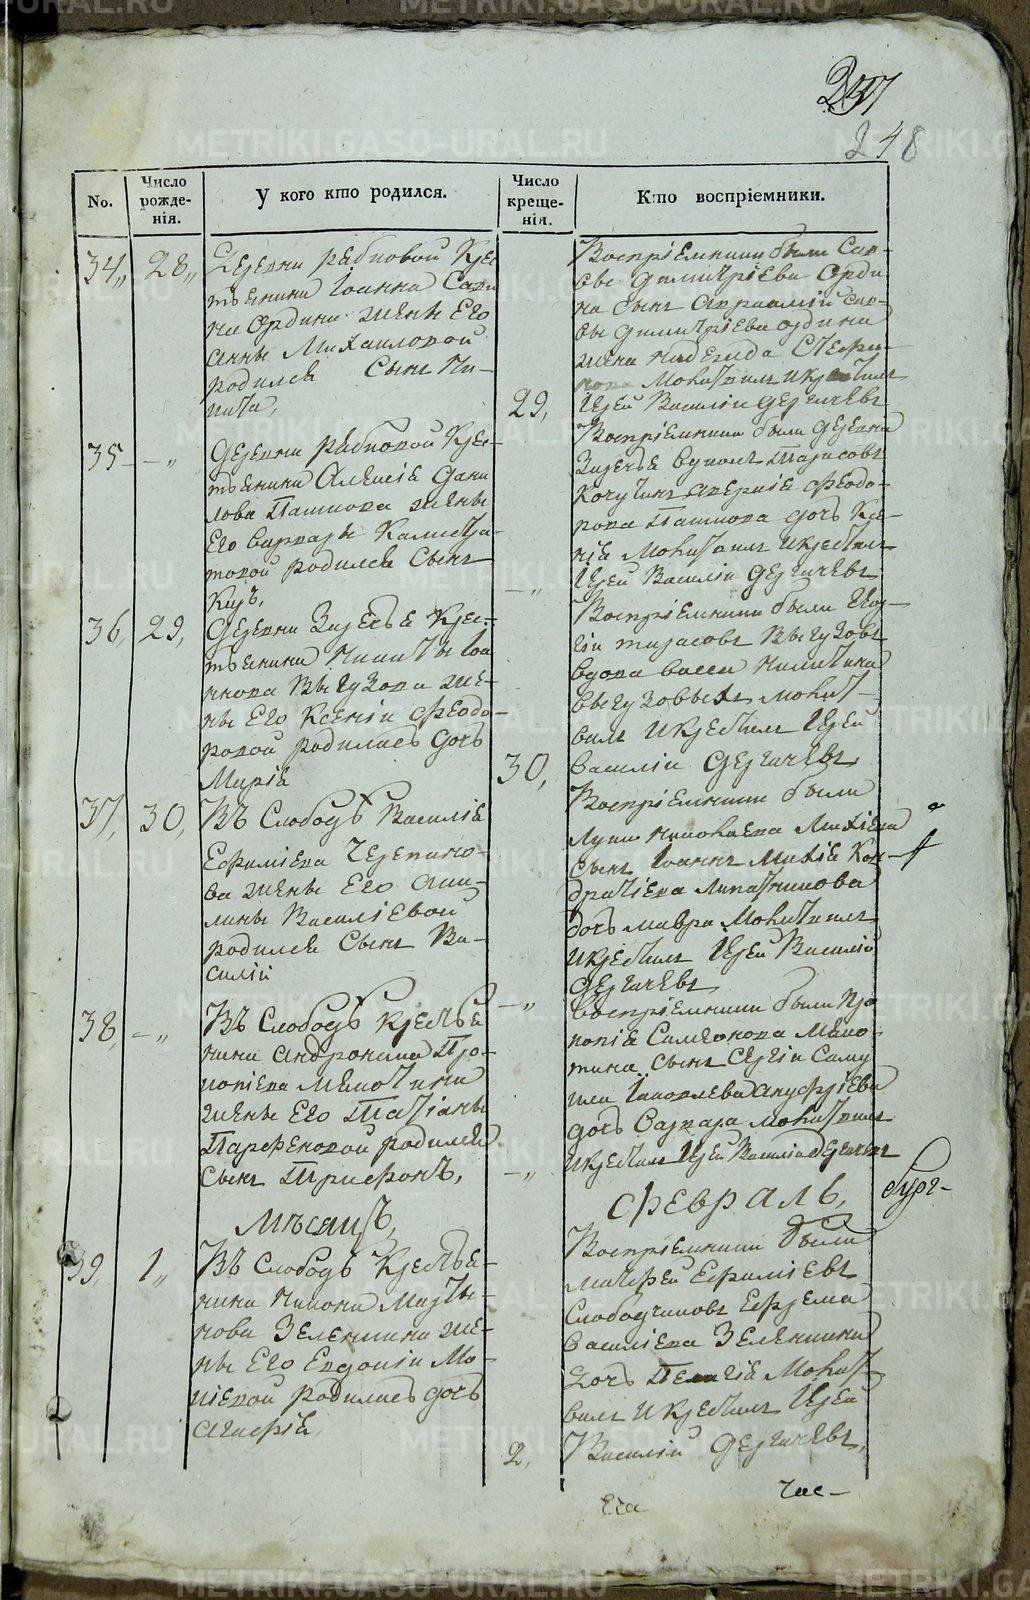 237
248
No.
Число рожде-нія.
У кого кто родился.
Число креще-нія.
Кто воспріемники.
34,, 28,,
Деревни Рябковой Крес
тьянина Іоанна Сави
на Ордина жены Его
Анны Михайловой
родился Сынъ Ни-
кита,
Воспріемники были Сав-
вы Димитріева Орди
на Сынъ Авраамій Сав-
вы Димитріева Ордина
жена Надежда Стефа-
нова Молитвилъ и крестилъ
29,
Іерей Василій Дергачевъ
35 — ,,
Деревни Рябковой Крес-
тьянина Алексія Дани
лова Пашкова жены
Его Варвары Калистра-
товой родился Сынъ
Киръ,
Воспріемники были Деревни
Тарасовъ
Кочутинъ Аверкія Феодо-
рова Пашкова дочь Ксе-
нія Молитвилъ и крестилъ
— ,,
Іерей Василій Дергачевъ
36, 29,
Деревни Крес-
тьянина Никиты Іоа
ннова жe-
ны Его Ксеніи Феодо-
ровой родилась дочь
Марія
Воспріемники были
Тарасовъ
вдова Никитина
Молит-
вилъ и крестилъ Іерей
30,
Василій Дергачевъ
37, 30,
Въ Слободѣ Василія
Ефиміева Черепано-
ва жены Его Аки-
лины Василіевой
родился Сынъ Ва-
силій
Воспріемники были
Луки Михіева
Сынъ Іоаннъ Михія Кон-
дратіева Липатникова
дочь Мавра Молитвилъ
и крестилъ Іерей Василій
— ,,
Дергачевъ
38, — ,,
Въ Слободѣ Крестья
нина Андроника Про-
копіева Мамотина
жены Его Татіаны
Парфеновой родился
Сынъ Трифонъ,
Воспріемники были Про
копія Симеонова Мамо-
тина Сынъ Сергій Саму
ила Іаковлева Ануфріева
дочь Варвара Молитвилъ
— ,,
и крестилъ Іерей Василій Дергачевъ
Мѣсяцъ,
Февраль,
39, 1,,
Въ Слободѣ Крестья-
нина Никона Марты-
нова Зеленкина же-
ны Его Евдокіи Мо-
кіевой родилась дочь
Агафія,
Воспріемники были
Матфей Ефиміевъ
Слободчиковъ Ефрема
Василіева Зеленкина
дочь Пелагія Молит-
вилъ и крестилъ Іерей
2,
Василій Дергачевъ,
METRIKI.GASO-URAL.RU